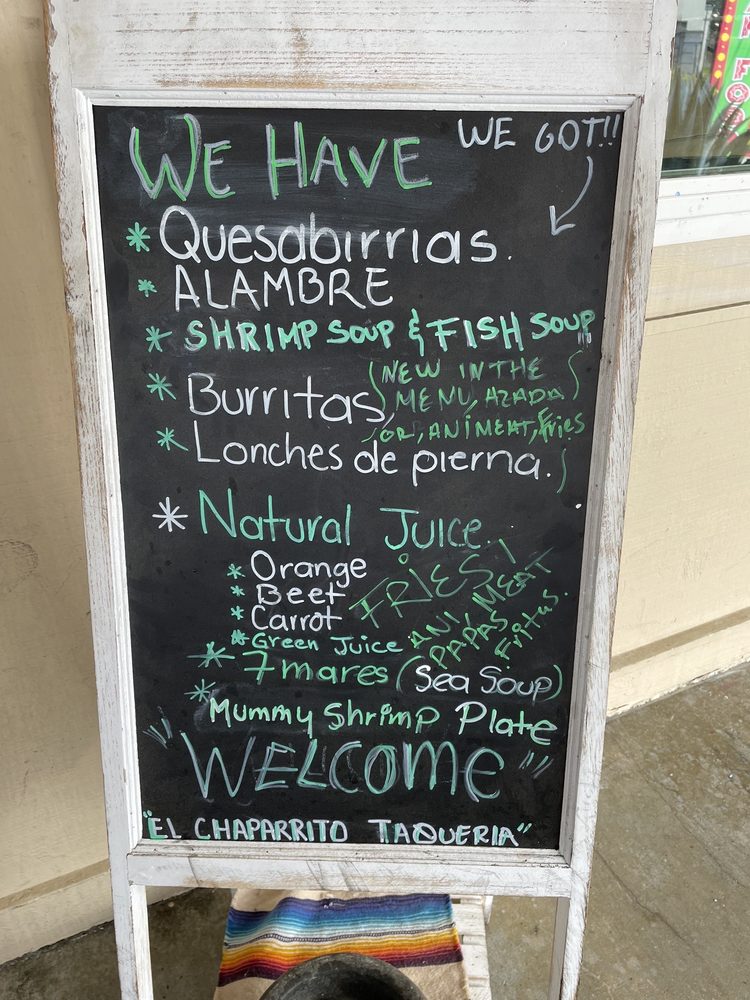 WE HAVE
WE GOT!!
* Quesabirrias.
* ALAMBRE
* SHRIMP SOUP & FISH SOUP
* Burritas
(NEW IN THE
MENU, AZADA
OR, ANIMEAT, Fries)
* Lonches de pierna.
* Natural Juice
* Orange
* Beet
* Carrot
* Green Juice
FRIES!
ANI, MEAT
PAPAS
Fritas.
* 7 mares (Sea Soup)
* Mummy Shrimp Plate
"WELCOME"
"EL CHAPARRITO TAQUERIA"